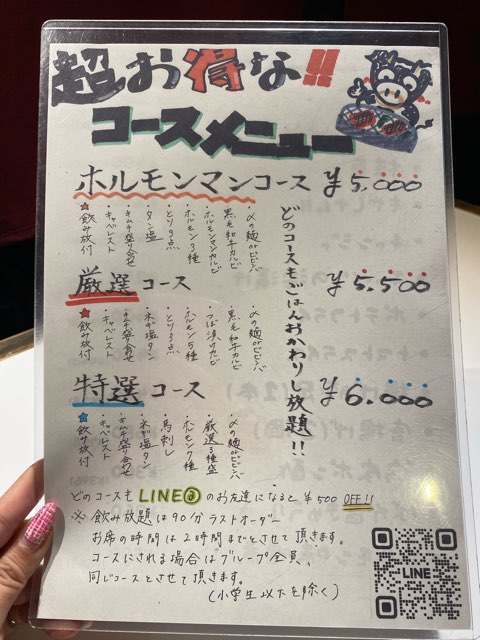 超お得な!!
コースメニュー
ホルモンマンコース ¥5,000
★飲み放付
・キャベレスト
・キムチ盛り合せ
・タン塩
・とり3点
・ホルモン3種
・ホルモンマンカルビ
・黒毛和牛カルビ
・〆の麺orビビンバ
厳選コース ¥5,500
★飲み放付
・キャベレスト
・キムチ盛り合せ
・ネギ塩タン
・とり3点
・ホルモン5種
・つぼ漬けカルビ
・黒毛和牛カルビ
・〆の麺orビビンバ
特選コース ¥6,000
★飲み放付
・キャベレスト
・キムチ盛り合せ
・ネギ塩タン
・馬刺し
・ホルモン7種
・厳選3種盛
・〆の麺orビビンバ
どのコースもごはんおかわりし放題!!
どのコースもLINE@のお友達になると¥500 OFF!!
※飲み放題は90分ラストオーダー
お席の時間は2時間までとさせて頂きます。
コースにされる場合はグループ全員、
同じコースとさせて頂きます。
(小学生以下を除く)
LINE